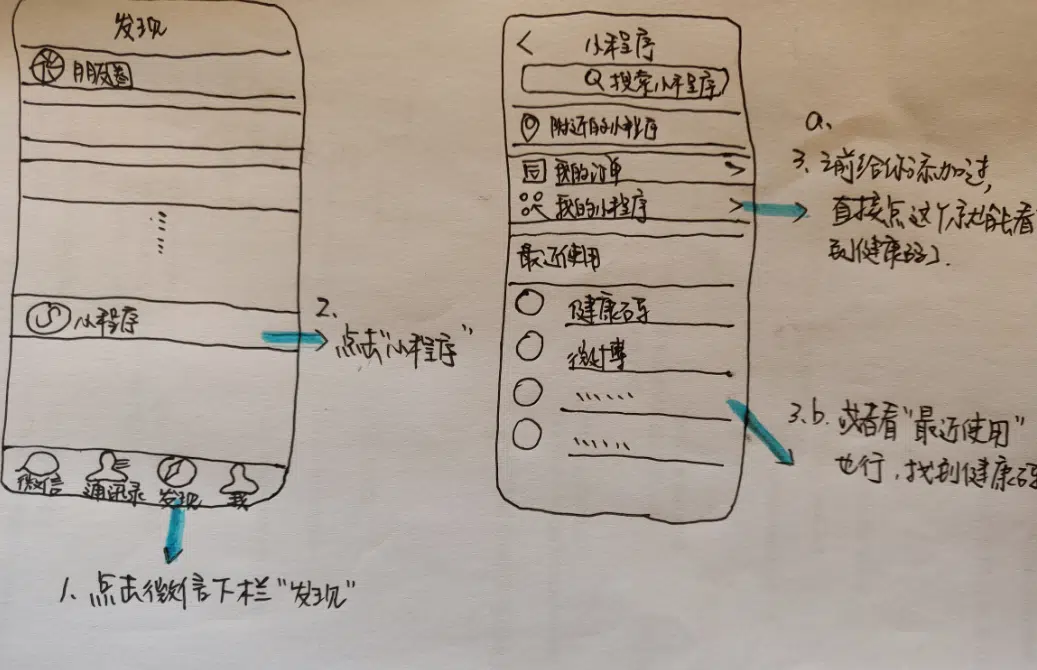 发现
朋友圈
小程序
微信 通讯录 发现 我
1. 点击微信下栏“发现”
2.
点击“小程序”
< 小程序
搜索小程序
附近的小程序
我的订单 >
我的小程序 >
最近使用
健康码
微博
......
......
a.
3. 之前给你添加过,
直接点这个就能看
到健康码).
3.b. 或者看“最近使用”
也行,找到健康码